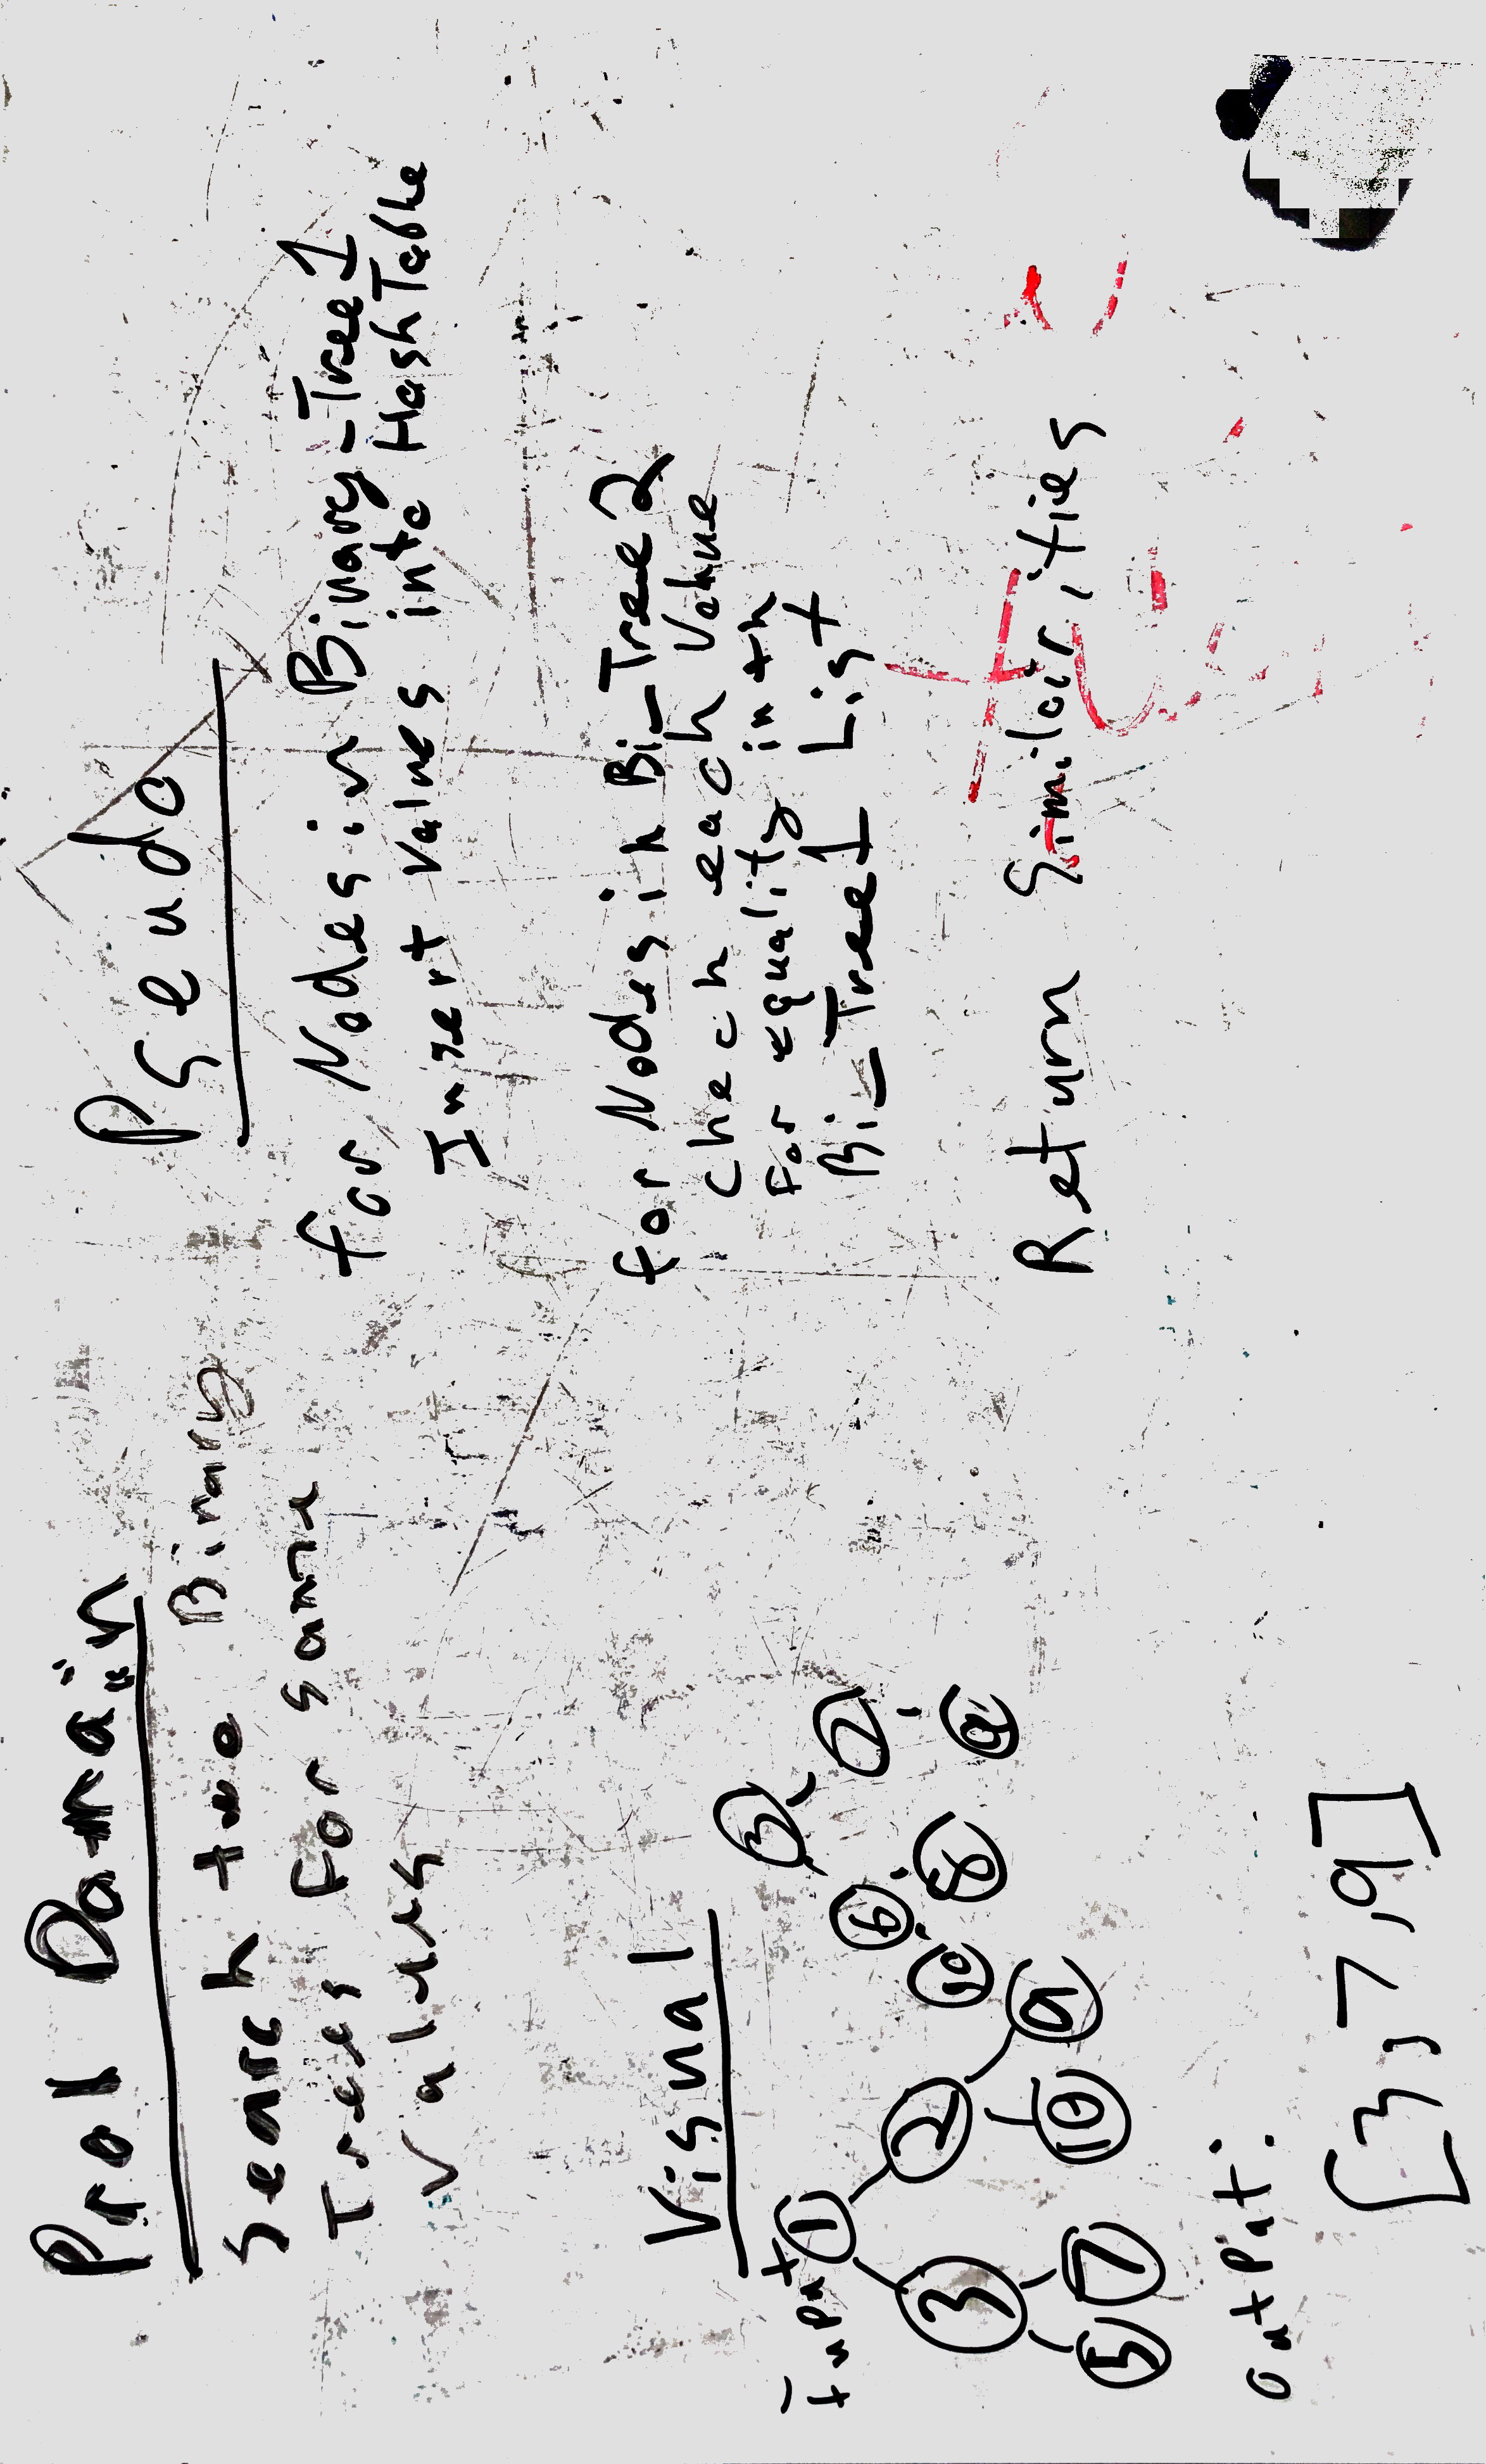 Prob Domain
Search two Binary
Trees For same
Values
Visual
Input
1
3
2
5
7
10
9
3
6
7
8
9
Output:
[3,7,9]
Pseudo
for Nodes in Binary-Tree1
Insert Values into HashTable
for Nodes in Bi_Tree2
check each Value
For equality in th
Bi_Tree1 List
Return Similarities